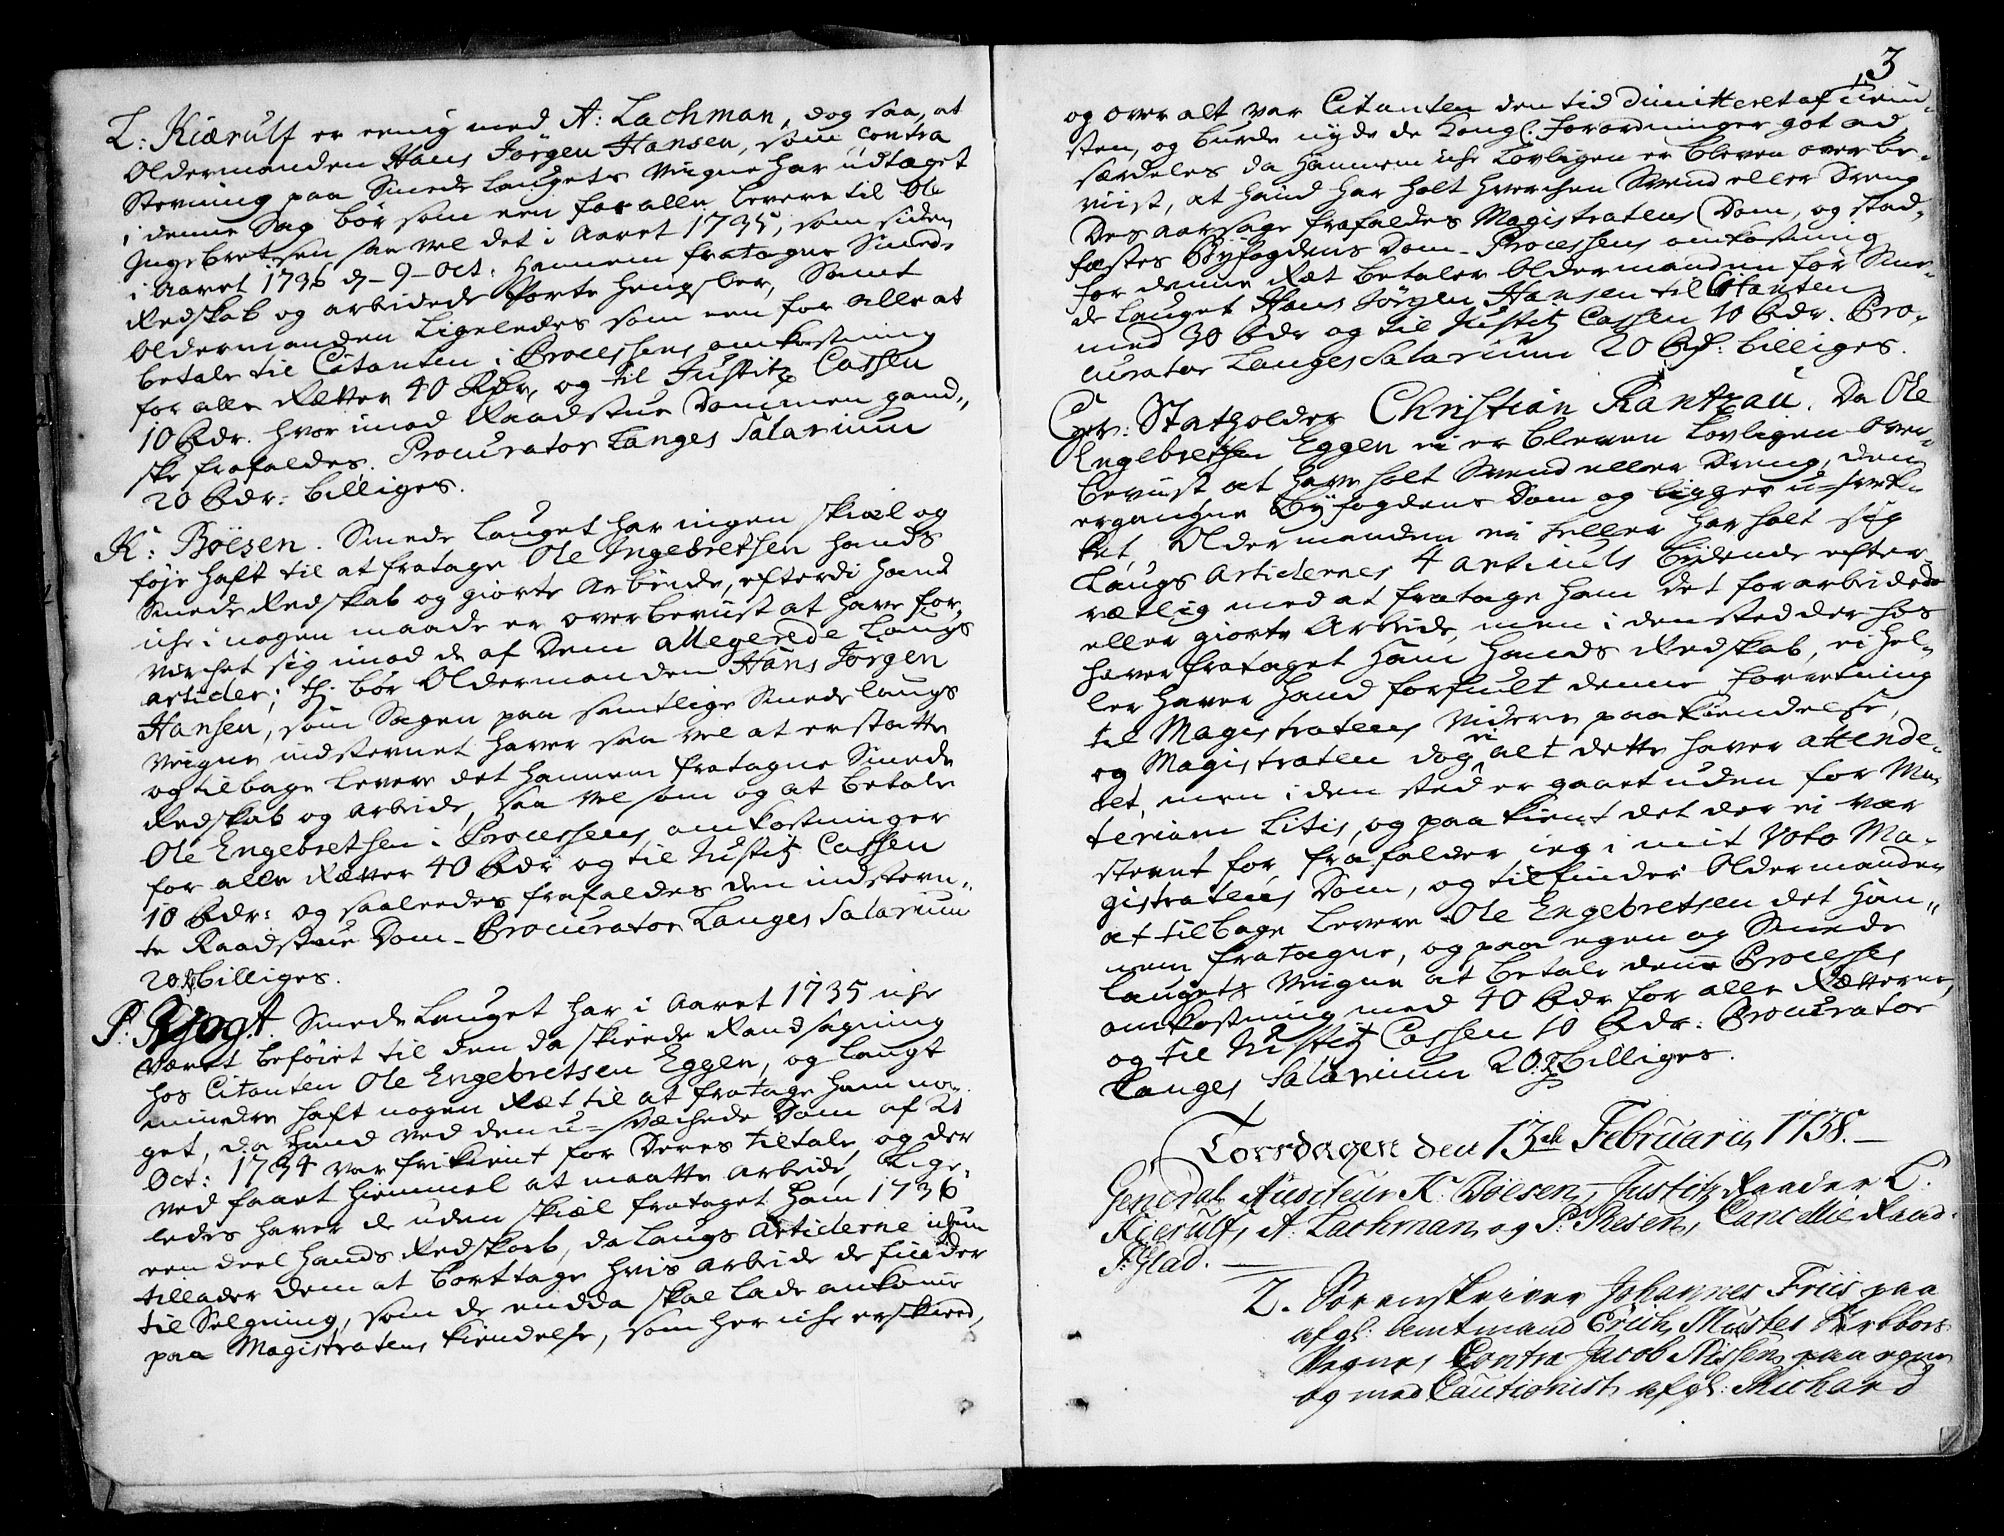 L: Kiærulf er eenig med A: Lachman, dog saa, at
Oldermanden Hans Jørgen Hansen, som contra
Stevning paa Smede Laugets Vegne har udtaget
i denne Sag bør som een for alle levere til Ole
Ingebretsen saa vel det i Aaret 1735, som siden
i Aaret 1736 d. 9 Oct: hannem fratagne Smede
Redskab og arbeidede Porte Hengsler, Samt
Oldermanden ligeledes som een for alle at
betale til Citanten i Processens omkostning
for alle Rætter 40 Rdr, og til Justitz Cassen
10 Rdr. hvor imod Raadstue Dommen gand,,
ske frafaldes. Procurator Langes Salarium
20 Rdr: billiges.
K: Bøesen. Smede Lauget har ingen skiæl og
føje haft til at fratage Ole Ingebretsen hands
Smede Redskab og giorte Arbeide, efterdi hand
iche i nogen maade er overbeviist at have for,,
værchet sig imod de af Dem allegerede Laugs
articler; thj bør Oldermanden Hans Jørgen
Hansen, som Sagen paa samtlige Smede laugs
Vegne indstevnet haver saa vel at erstatte
og tilbage levere det hannem fratagne Smede
Redskab og arbeide, saa vel som og at betale
Ole Engebretsen i Processens omkostninger
for alle Rætter 40 Rdr og til Justitz Cassen
10 Rdr: og saaleedes frafaldes den indstevn,,
te Raadstue Dom. Procurator Langes Salarium
20 Rd billiges.
P. Vogt. Smede Lauget har i Aaret 1735 iche
Været beføiet til den da skeede Randsagning
hos Citanten Ole Engebretsen Eggen, og langt
mindre haft nogen Ræt til at fratage ham no,,
get, da hand ved den u-svæchede Dom af 21
Oct: 1734 var frikient for Deres tiltale, og der
ved faaet hiemmel at maatte arbeide, Lige,
ledes haver de uden skiæl frataget ham 1736
een deel hands Redskab, da Laugs Articlerne ichun
tillader dem at borttage hvis arbeide de finder
til Selgning, som de endda skal lade ankomme
paa Magistratens kiendelse, som her iche er skeed,
3
og over alt var Citanten den tid dimitteret af tieni,
sten, og burde nyde de Kongl. forordninger got ad,
særdeles da hannem iche Lovligen er bleven overbe,,
viist, at hand har holt hverchen Svend eller Dreng
Des aarsage frafaldes Magistratens Dom, og stad,
fæstes Byfogdens Dom. Processens omkostning
for denne Ræt betaler Oldermanden for Sme,
de Lauget Hans Jørgen Hansen til Citanten
med 30 Rdr og til Justitz Cassen 10 Rdr. Pro,
curator Langes Salarium 20 Rd: billiges.
Gr: Statholder Christian Rantzau. Da Ole
Engebretsen Eggen ei er bleven Lovligen over,
beviist at have holt Svend eller Dreng, den
ergangne Byfogdens Dom og ligger u-svek,,
ket, Oldermanden ei heller har holt sig
Laugs Articlernes 4 articuls bydende efter,
rætlig med at fratage ham det forarbeidede
eller giorte Arbeide, men i den sted der hos
haver frataget ham hands Redskab, ei hel,
ler haver hand forfult denne forretning
til Magistratens videre paakiendelse,
og Magistraten dog ei alt dette haver attende,
det, men i den sted er gaaet uden for Ma,
teriam Litis, og paakient det der ei var
stevnt for, frafalder jeg i mit Voto Ma,
gistratens Dom, og tilfinder Oldermanden
at tilbage levere Ole Engebretsen det han,,
nem fratagne, og paa egen og Smede
Laugets Vegne at betale denne Processes
omkostning med 40 Rdr for alle Rætterne,
og til Justitz Cassen 10 Rdr: Procurator
Langes Salarium 20 Rd billiges.
Torsdagen den 13de Februarii, 1738.
General Auditeur K. Bøesen, Justitz Raader L.
Kierulf, A. Lachman og P. Resen, Cancellie Raad
P. Glad.
2. Sorenskriver Johannes Friis paa
afgl: Amtmand Erich Must
Vegne, Contra Jacob Nissen paa egne
og med Cautionist afgl: Richard